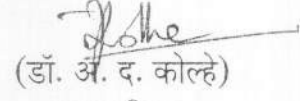 (डॉ. अ. द. कोल्हे)